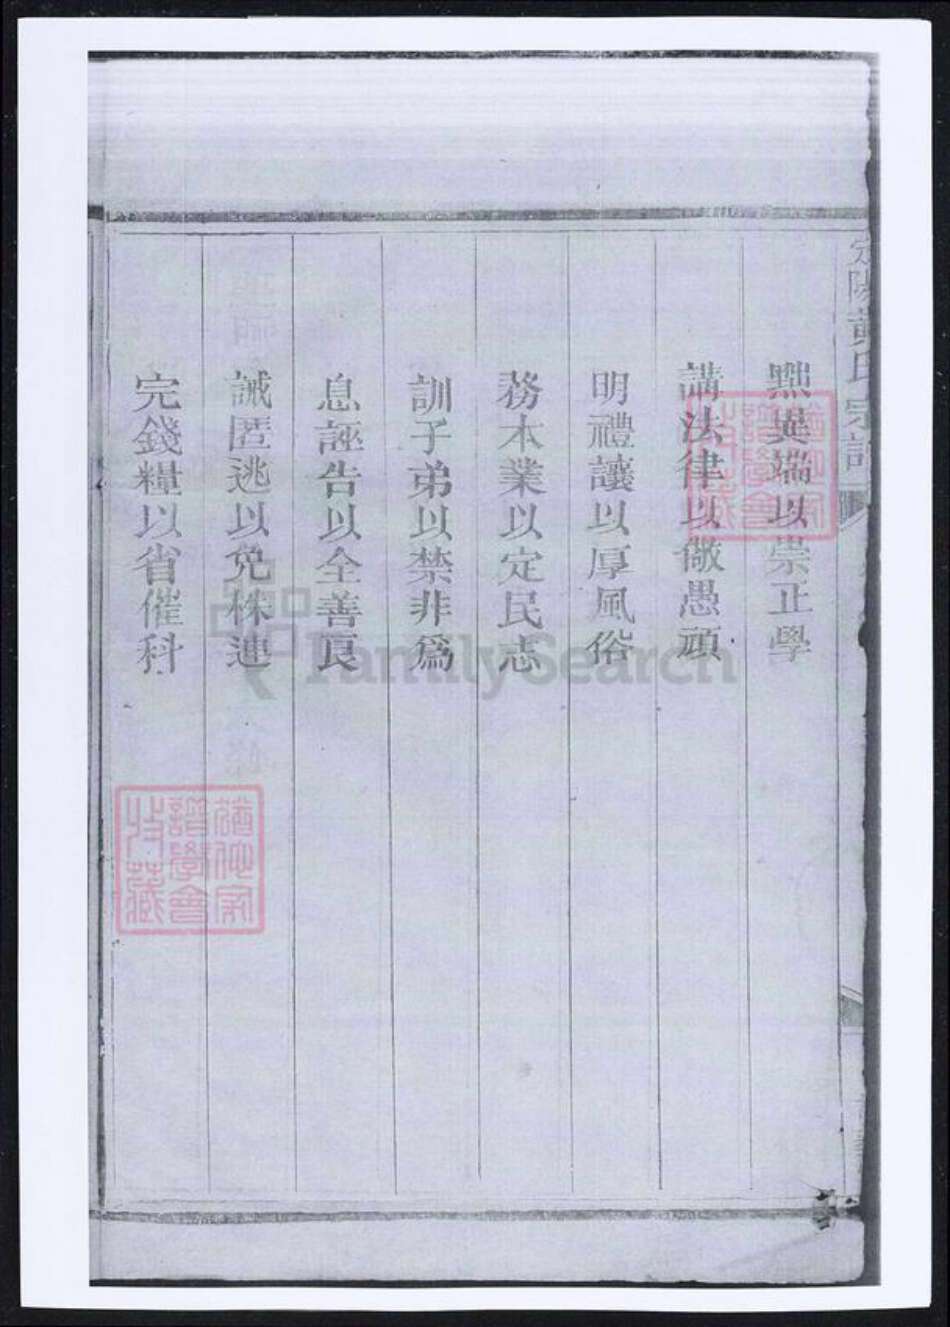 定陽黃氏宗譜
黜異端以崇正學
講法律以儆愚頑
明禮讓以厚風俗
務本業以定民志
訓子弟以禁非為
息誣告以全善良
誡匿逃以免株連
完錢糧以省催科
FamilySearch
譜學會
收藏
譜學會
收藏